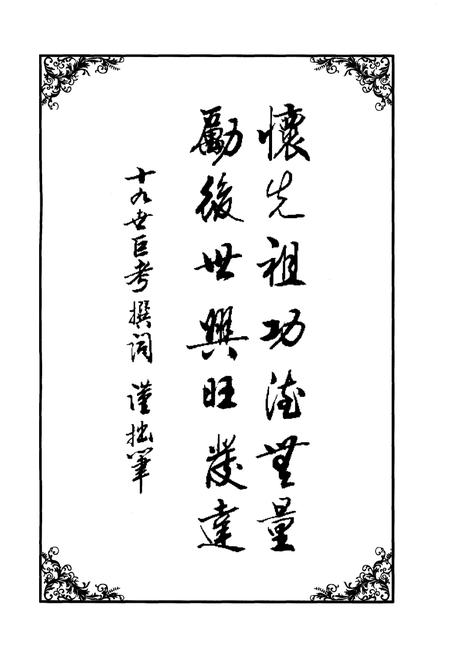 懷先祖功德無量
勵後世興旺發達
十九世巨考撰詞 謹拙筆